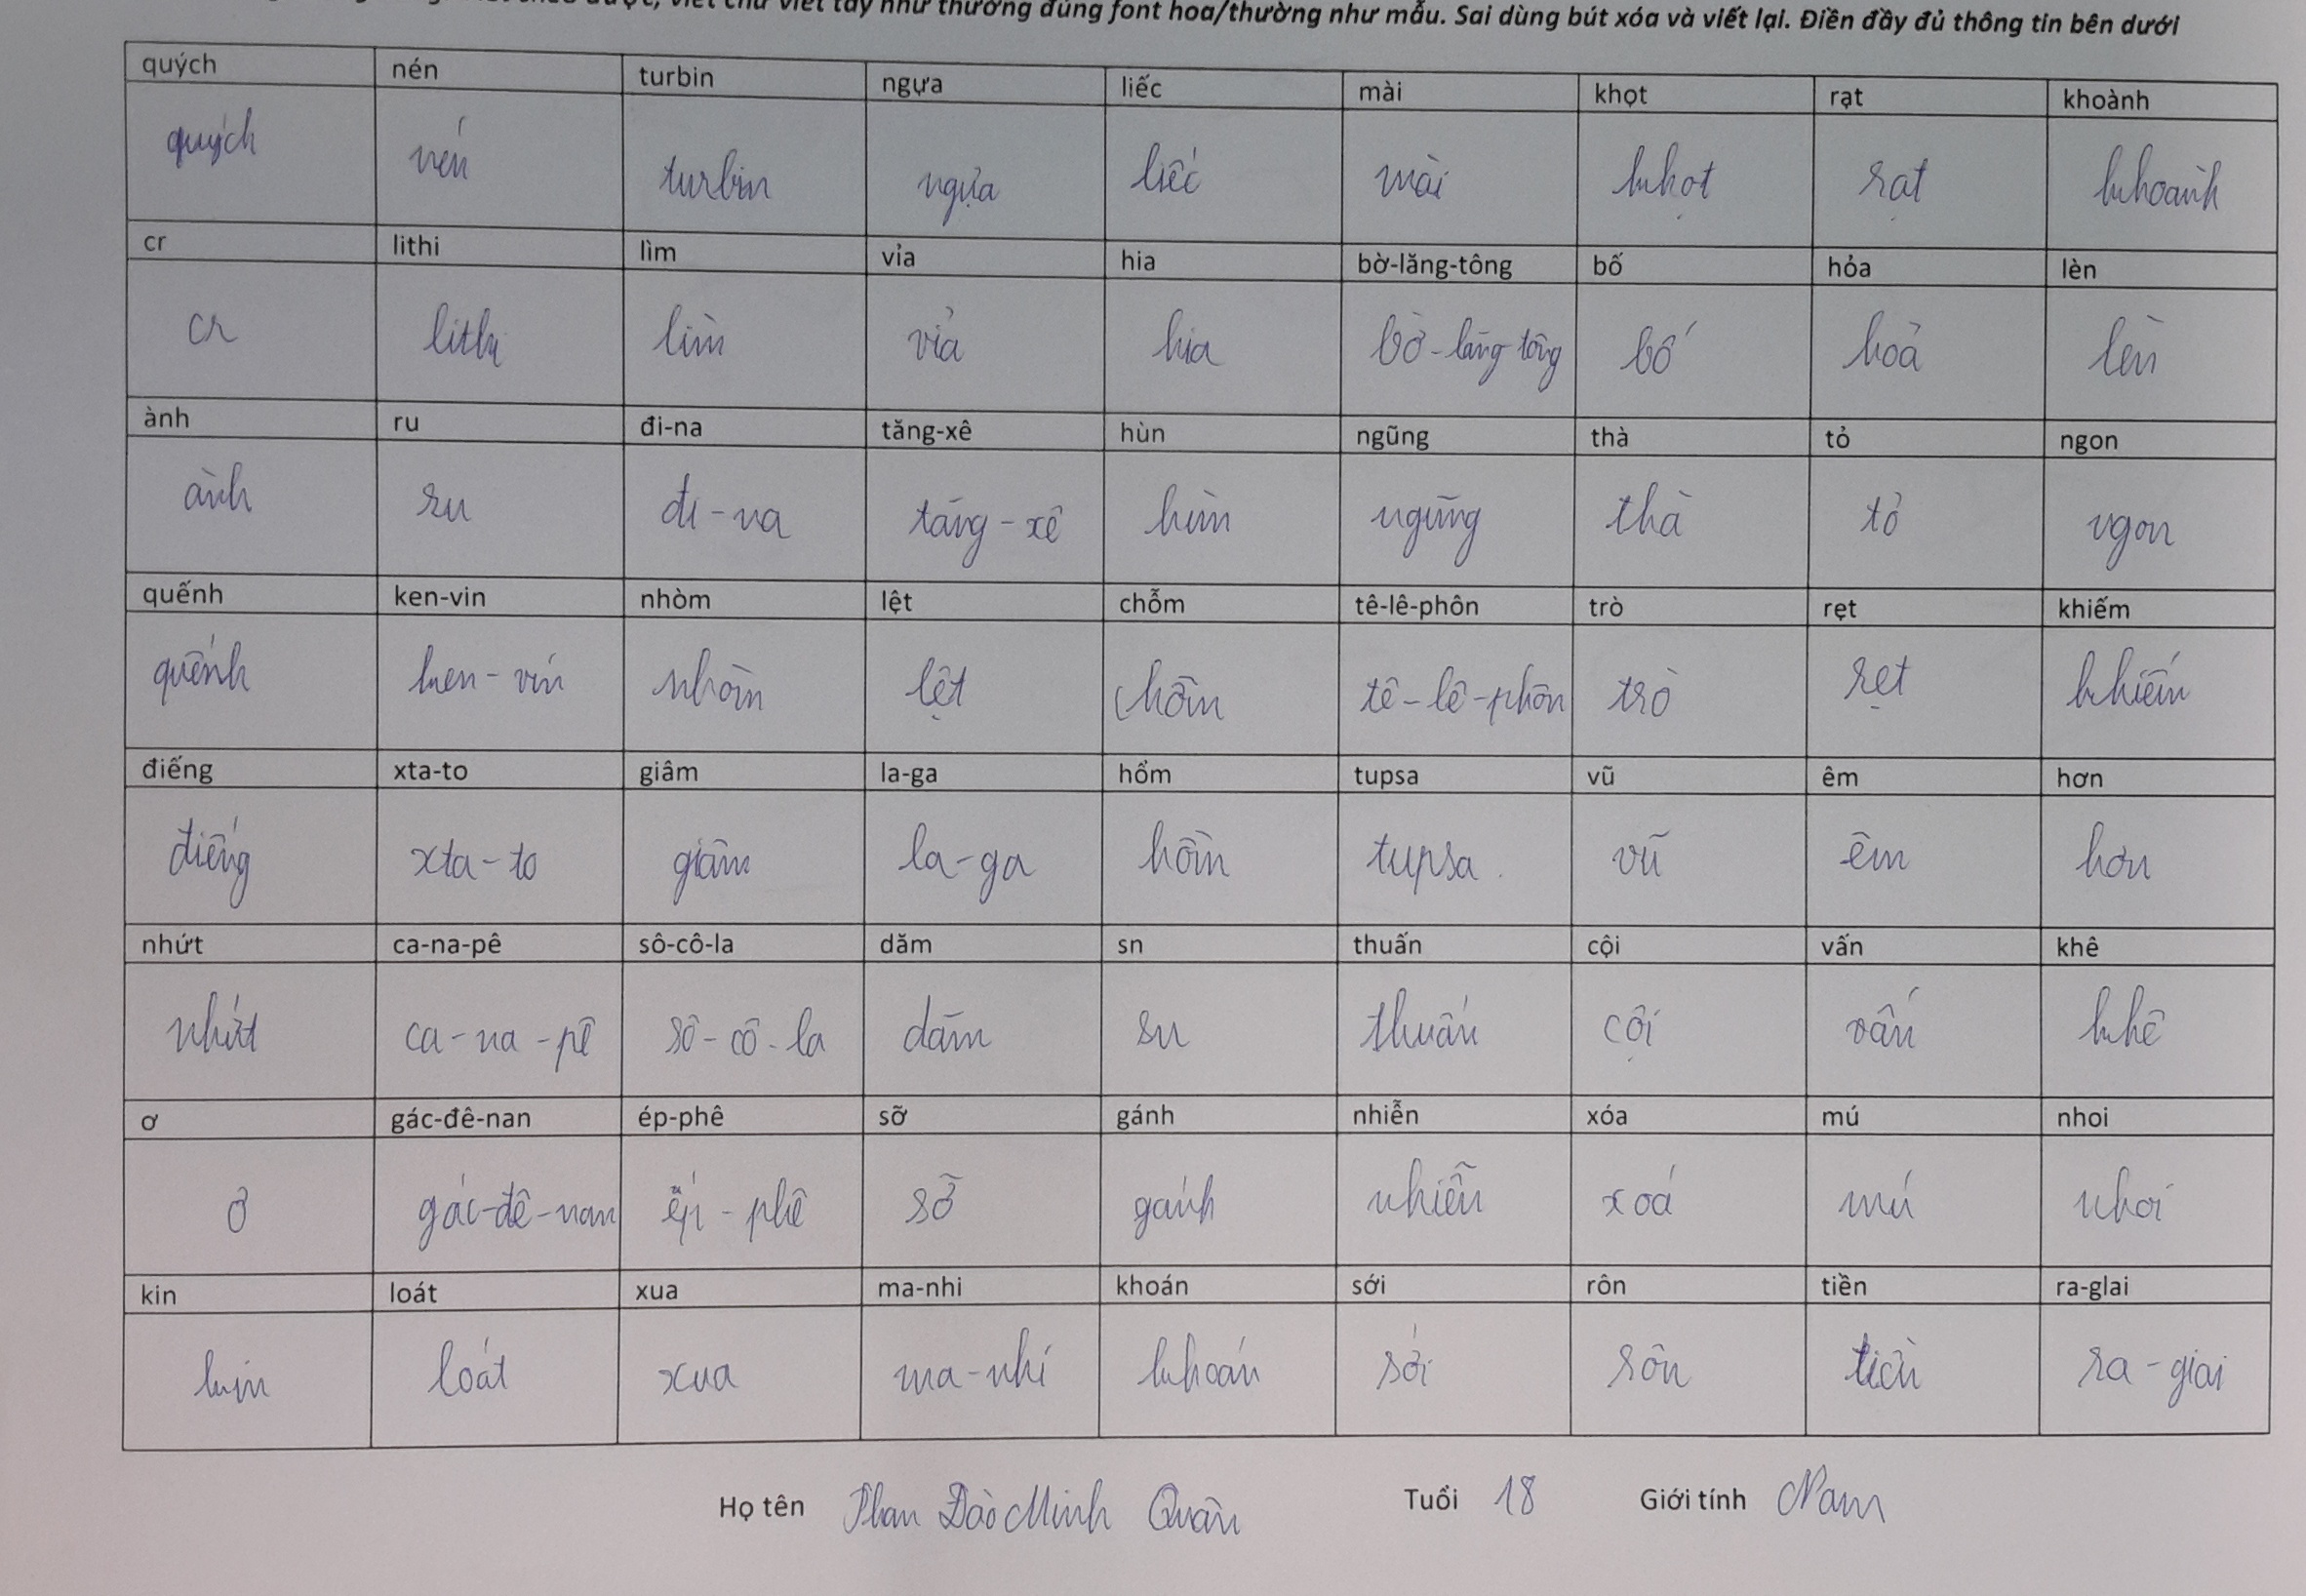 viết chữ viết tay như thường đúng font hoa/thường như mẫu. Sai dùng bút xóa và viết lại. Điền đầy đủ thông tin bên dưới
quých nén turbin ngựa liếc mài khọt rạt khoành
quých nén turbin ngựa liếc mài khọt rạt khoành
cr lithi lìm vỉa hia bờ-lăng-tông bố hỏa lèn
cr lithi lìm vỉa hia bờ-lăng tông bố hoả lèn
ành ru đi-na tăng-xê hùn ngũng thà tỏ ngon
ành ru đi-na tăng-xê hùn ngũng thà tỏ ngon
quếnh ken-vin nhòm lệt chỗm tê-lê-phôn trò rẹt khiếm
quếnh ken-vin nhòm lệt chỗm tê-lê-phôn trò rẹt khiếm
điếng xta-to giâm la-ga hổm tupsa vũ êm hơn
điếng xta-to giâm la-ga hổm tupsa vũ êm hơn
nhứt ca-na-pê sô-cô-la dăm sn thuấn cội vấn khê
nhứt ca-na-pê sô-cô-la dăm sn thuấn cội vấn khê
ơ gác-đê-nan ép-phê sỡ gánh nhiễn xóa mú nhoi
ơ gác-đê-nan ép-phê sỡ gánh nhiễn xoá mú nhoi
kin loát xua ma-nhi khoán sới rôn tiền ra-glai
kin loát xua ma-nhi khoán sới rôn tiền ra-giai
Họ tên Phan Đào Minh Quân Tuổi 18 Giới tính Nam